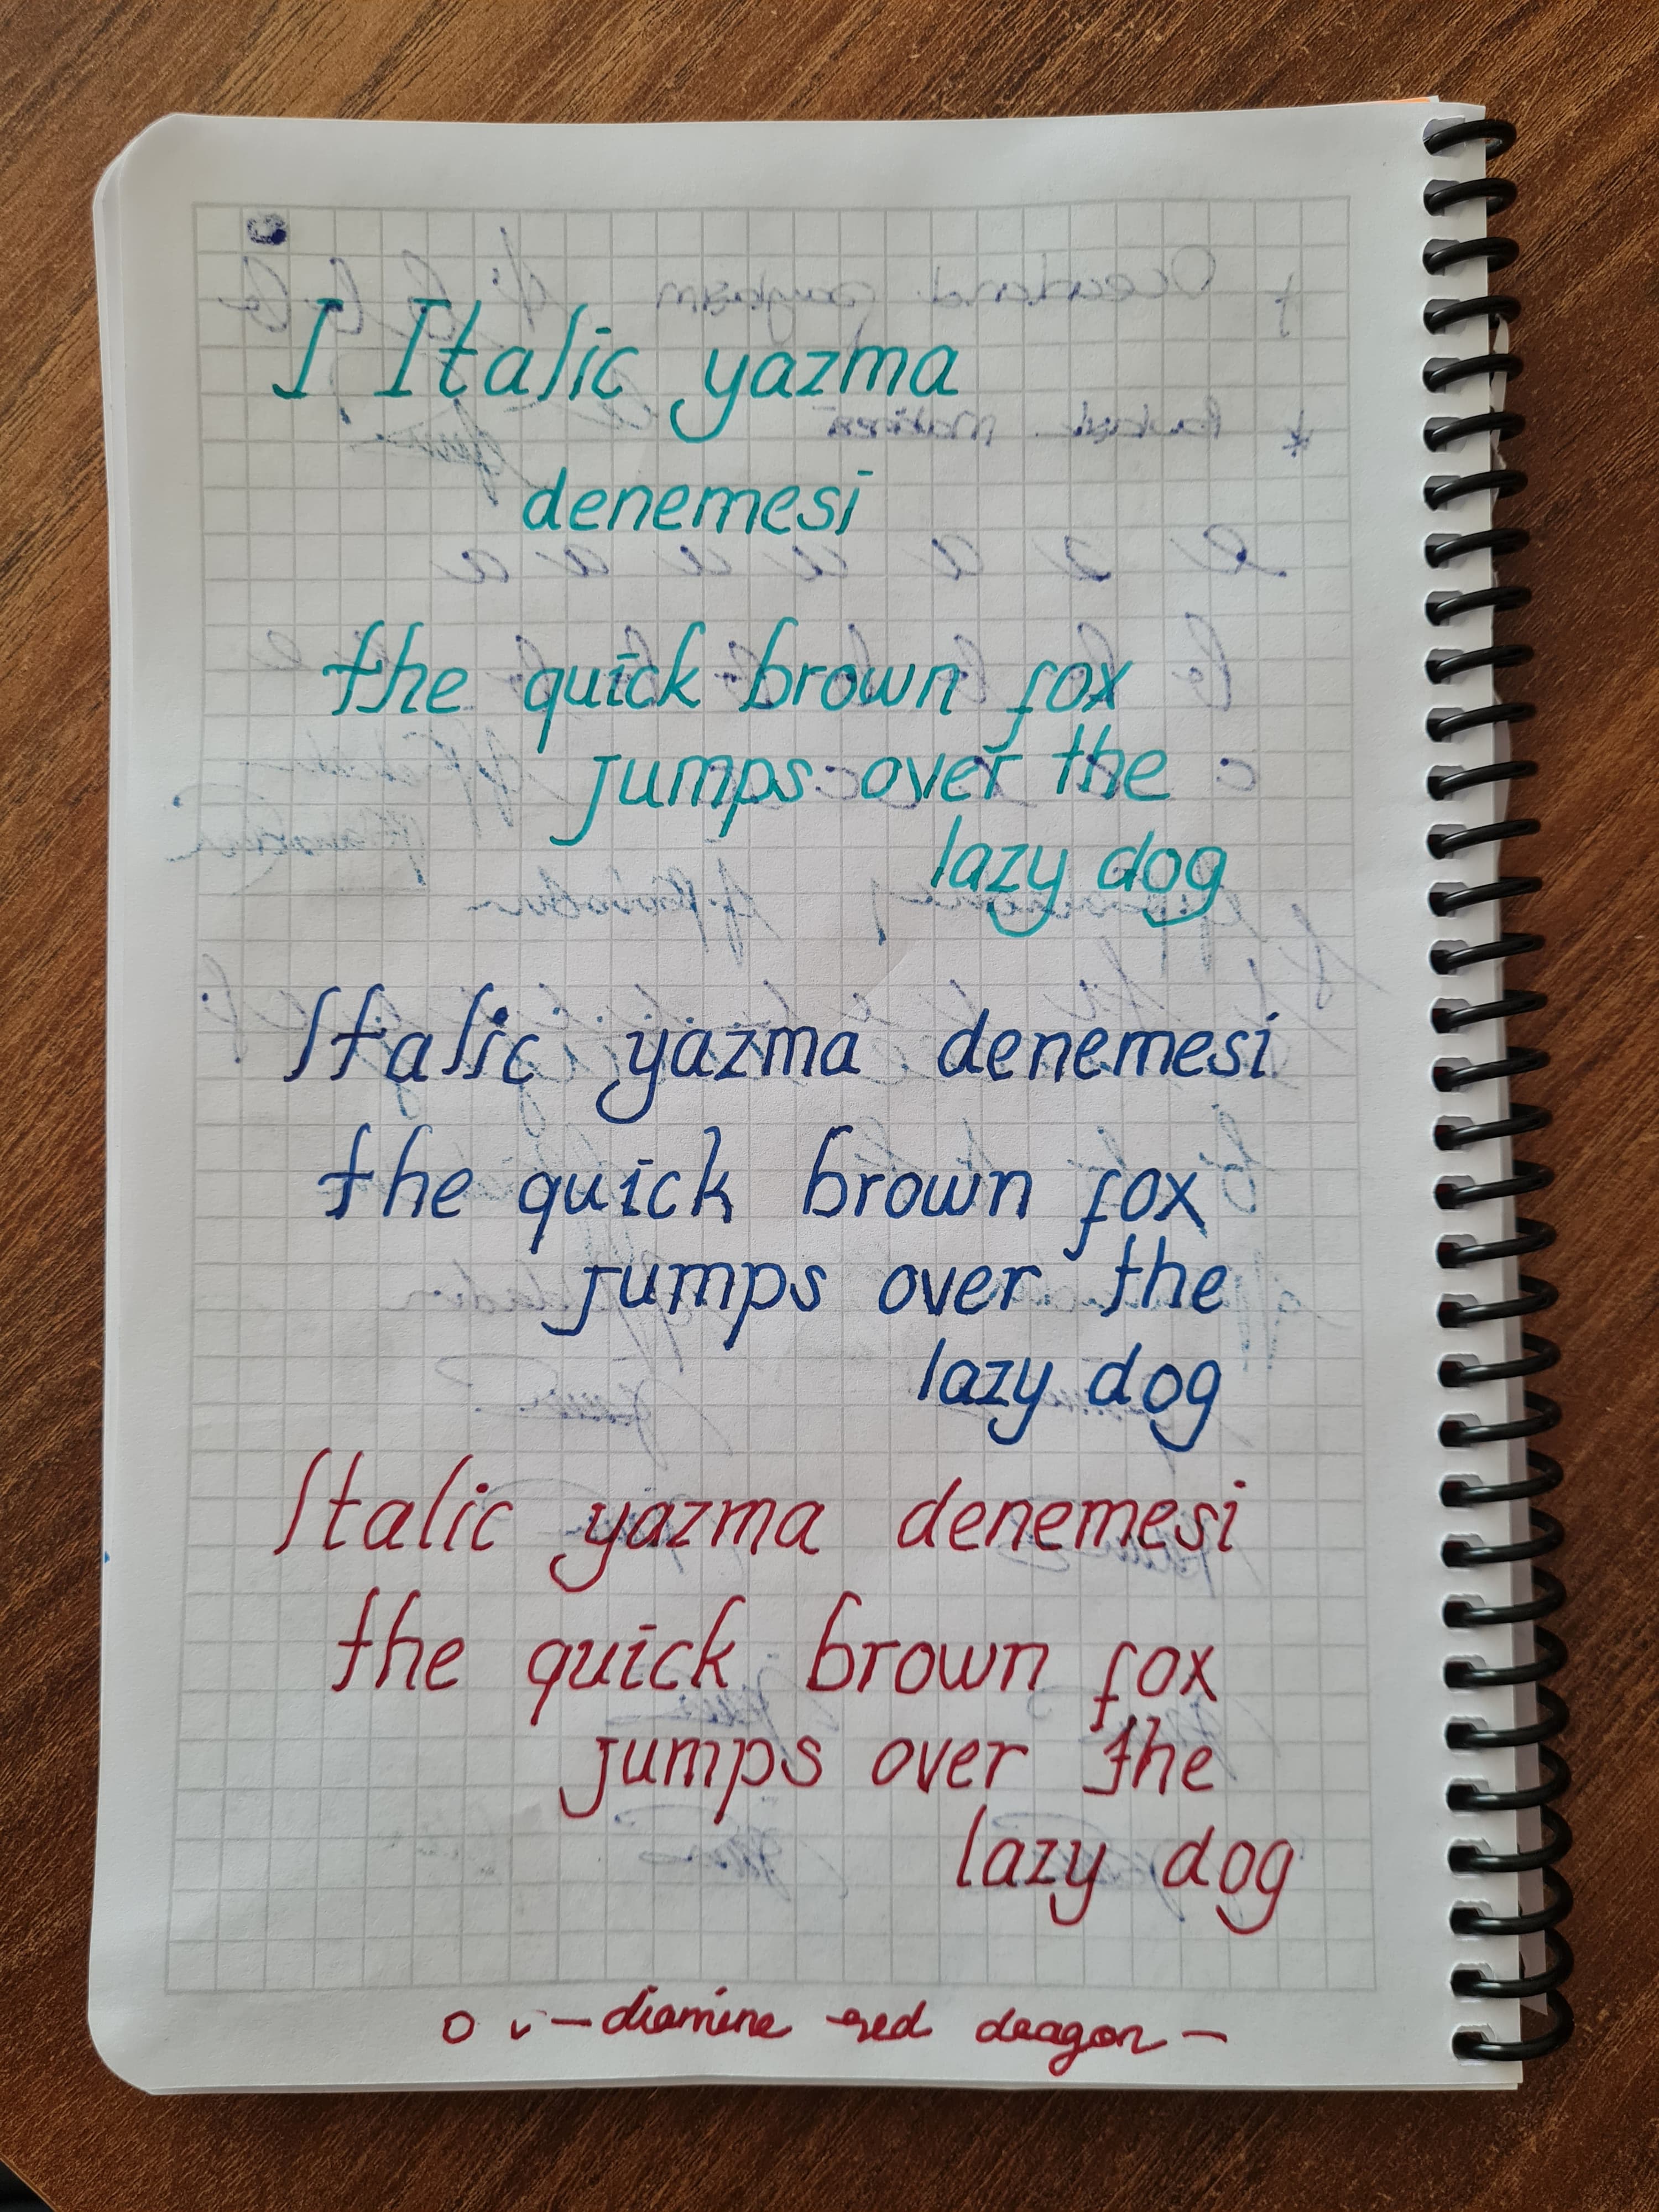 I Italic yazma
denemesi
the quick brown fox
jumps over the
lazy dog
Italic yazma denemesi
the quick brown fox
jumps over the
lazy dog
Italic yazma denemesi
the quick brown fox
jumps over the
lazy dog
— diamine red dragon —